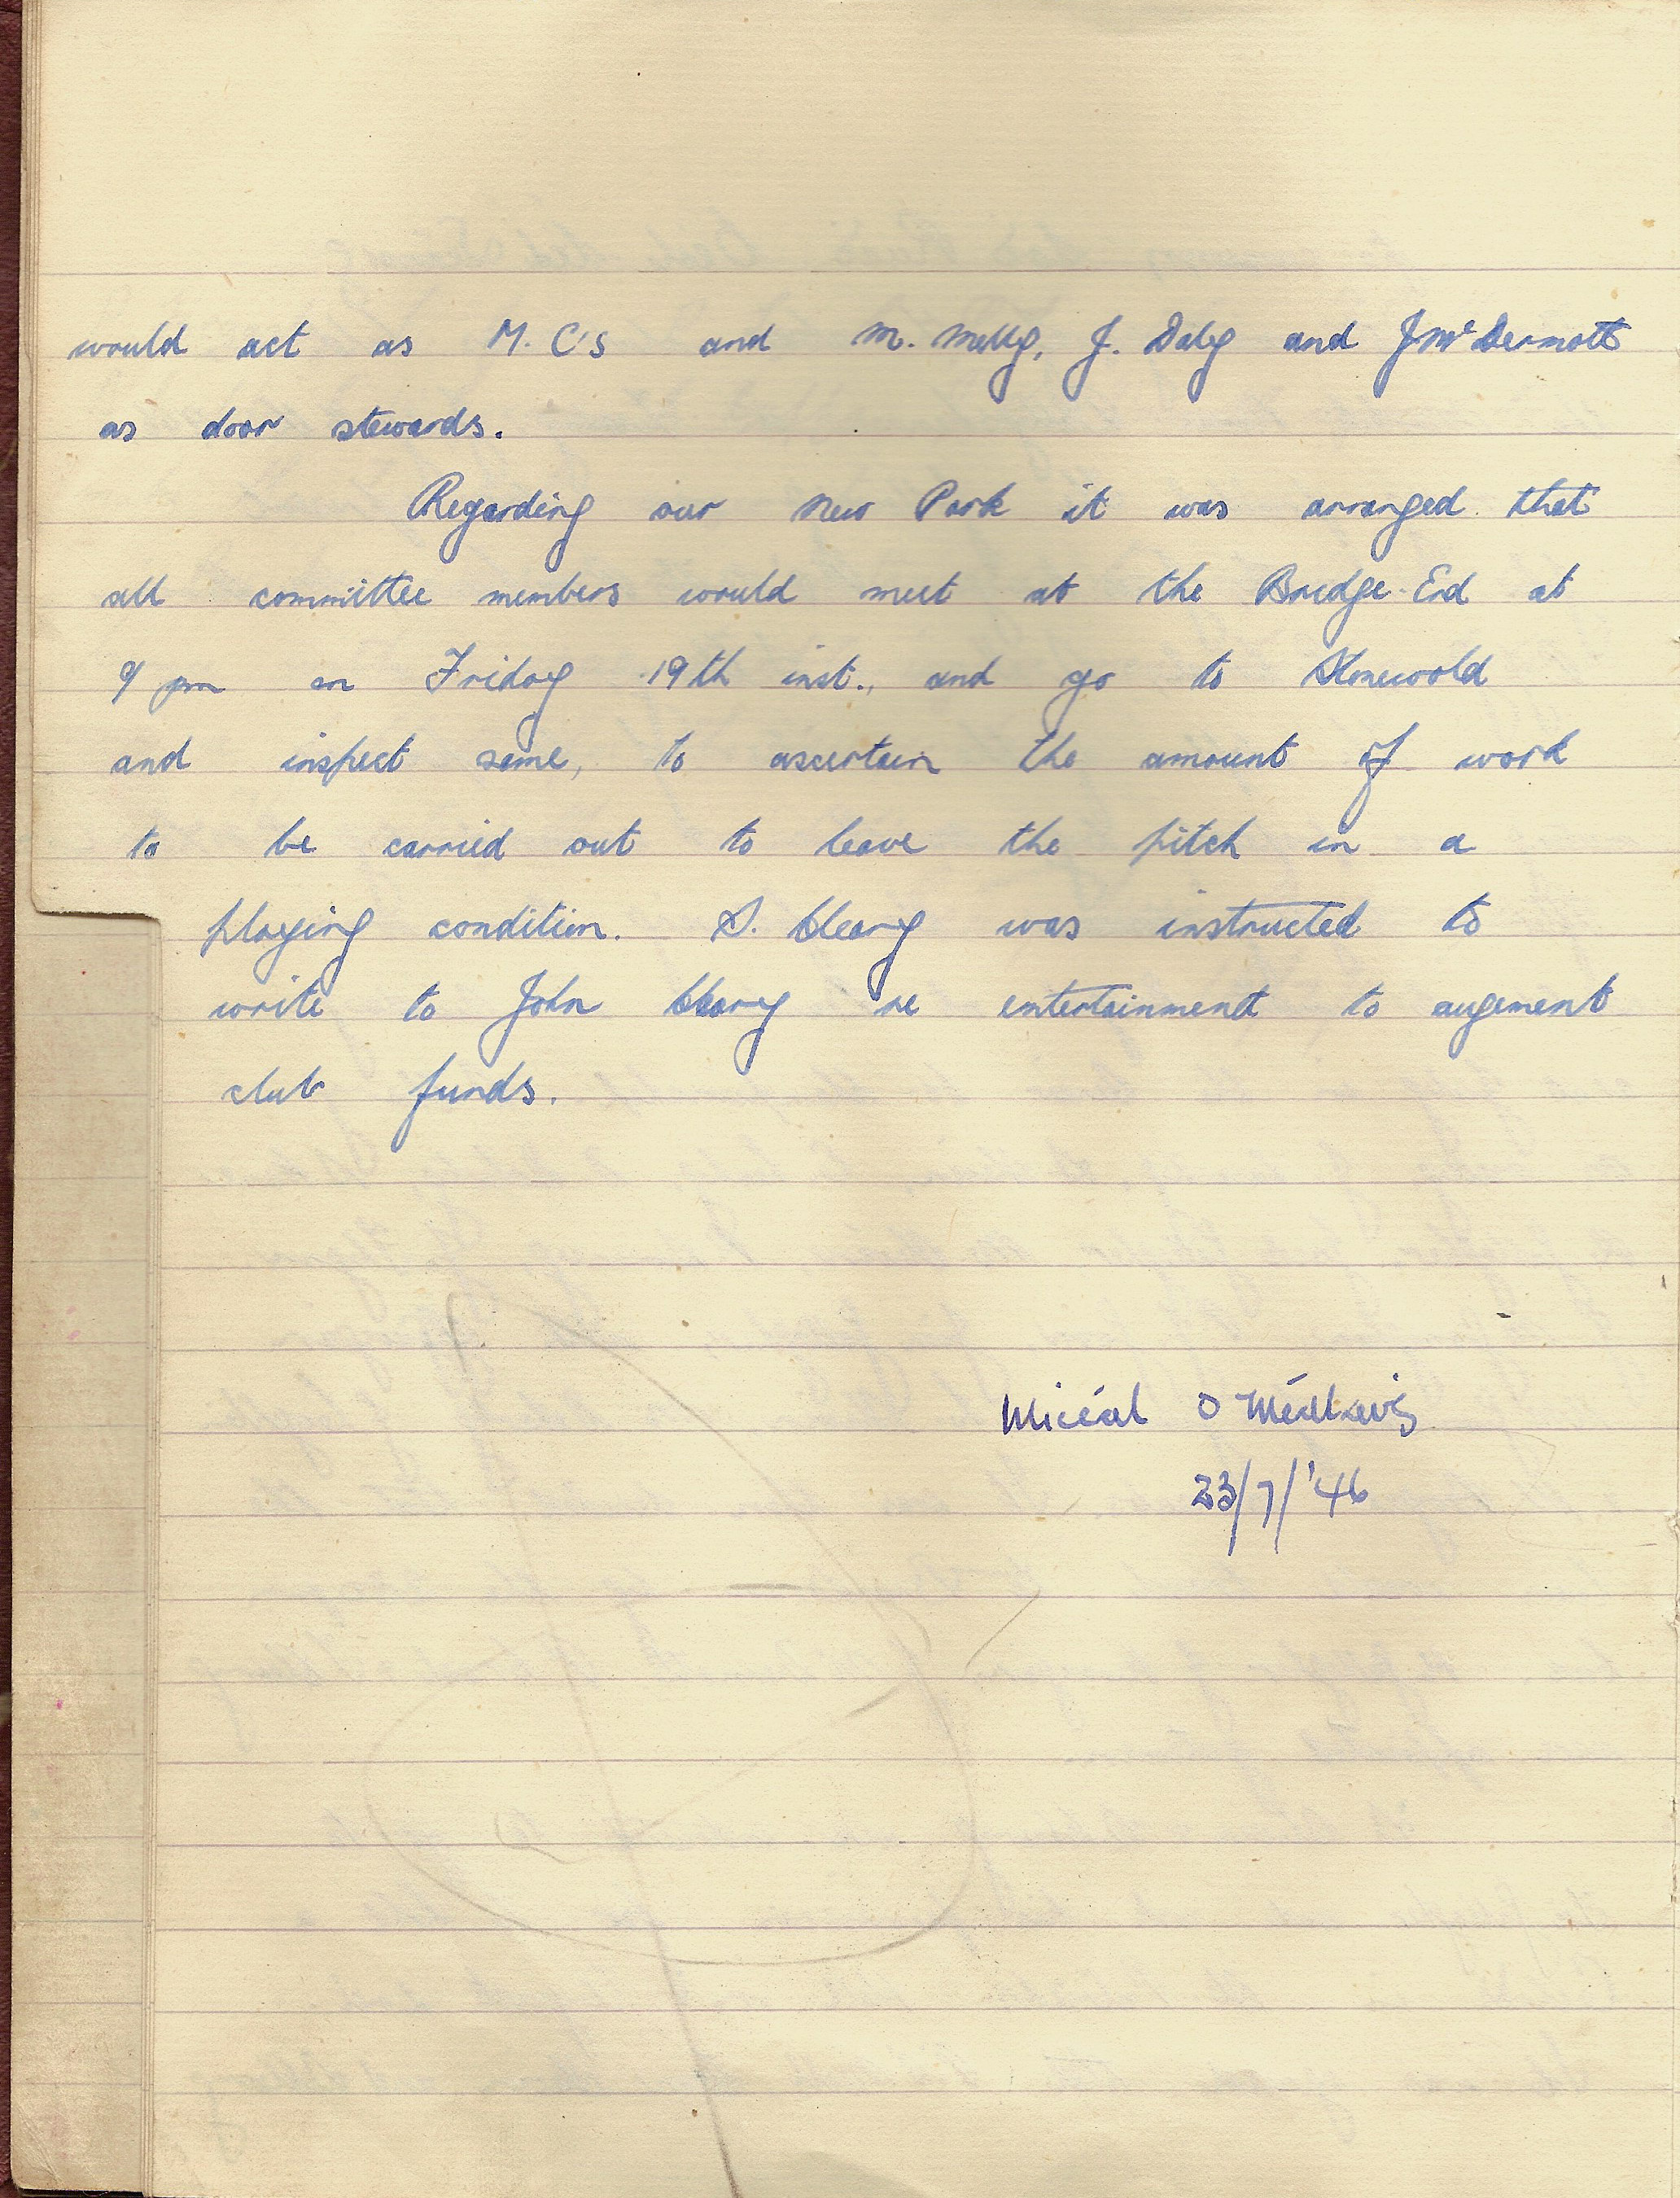 would act as M. C's and M. Melly, J. Daly and J McDermott
as door stewards.
Regarding our new Park it was arranged that
all committee members would meet at the Bridge End at
9 pm on Friday 19th inst., and go to Stonewold
and inspect same, to ascertain the amount of work
to be carried out to leave the pitch in a
playing condition. S. Cleary was instructed to
write to John Cleary re entertainment to augement
club funds.
Micéal O
23/7/'46